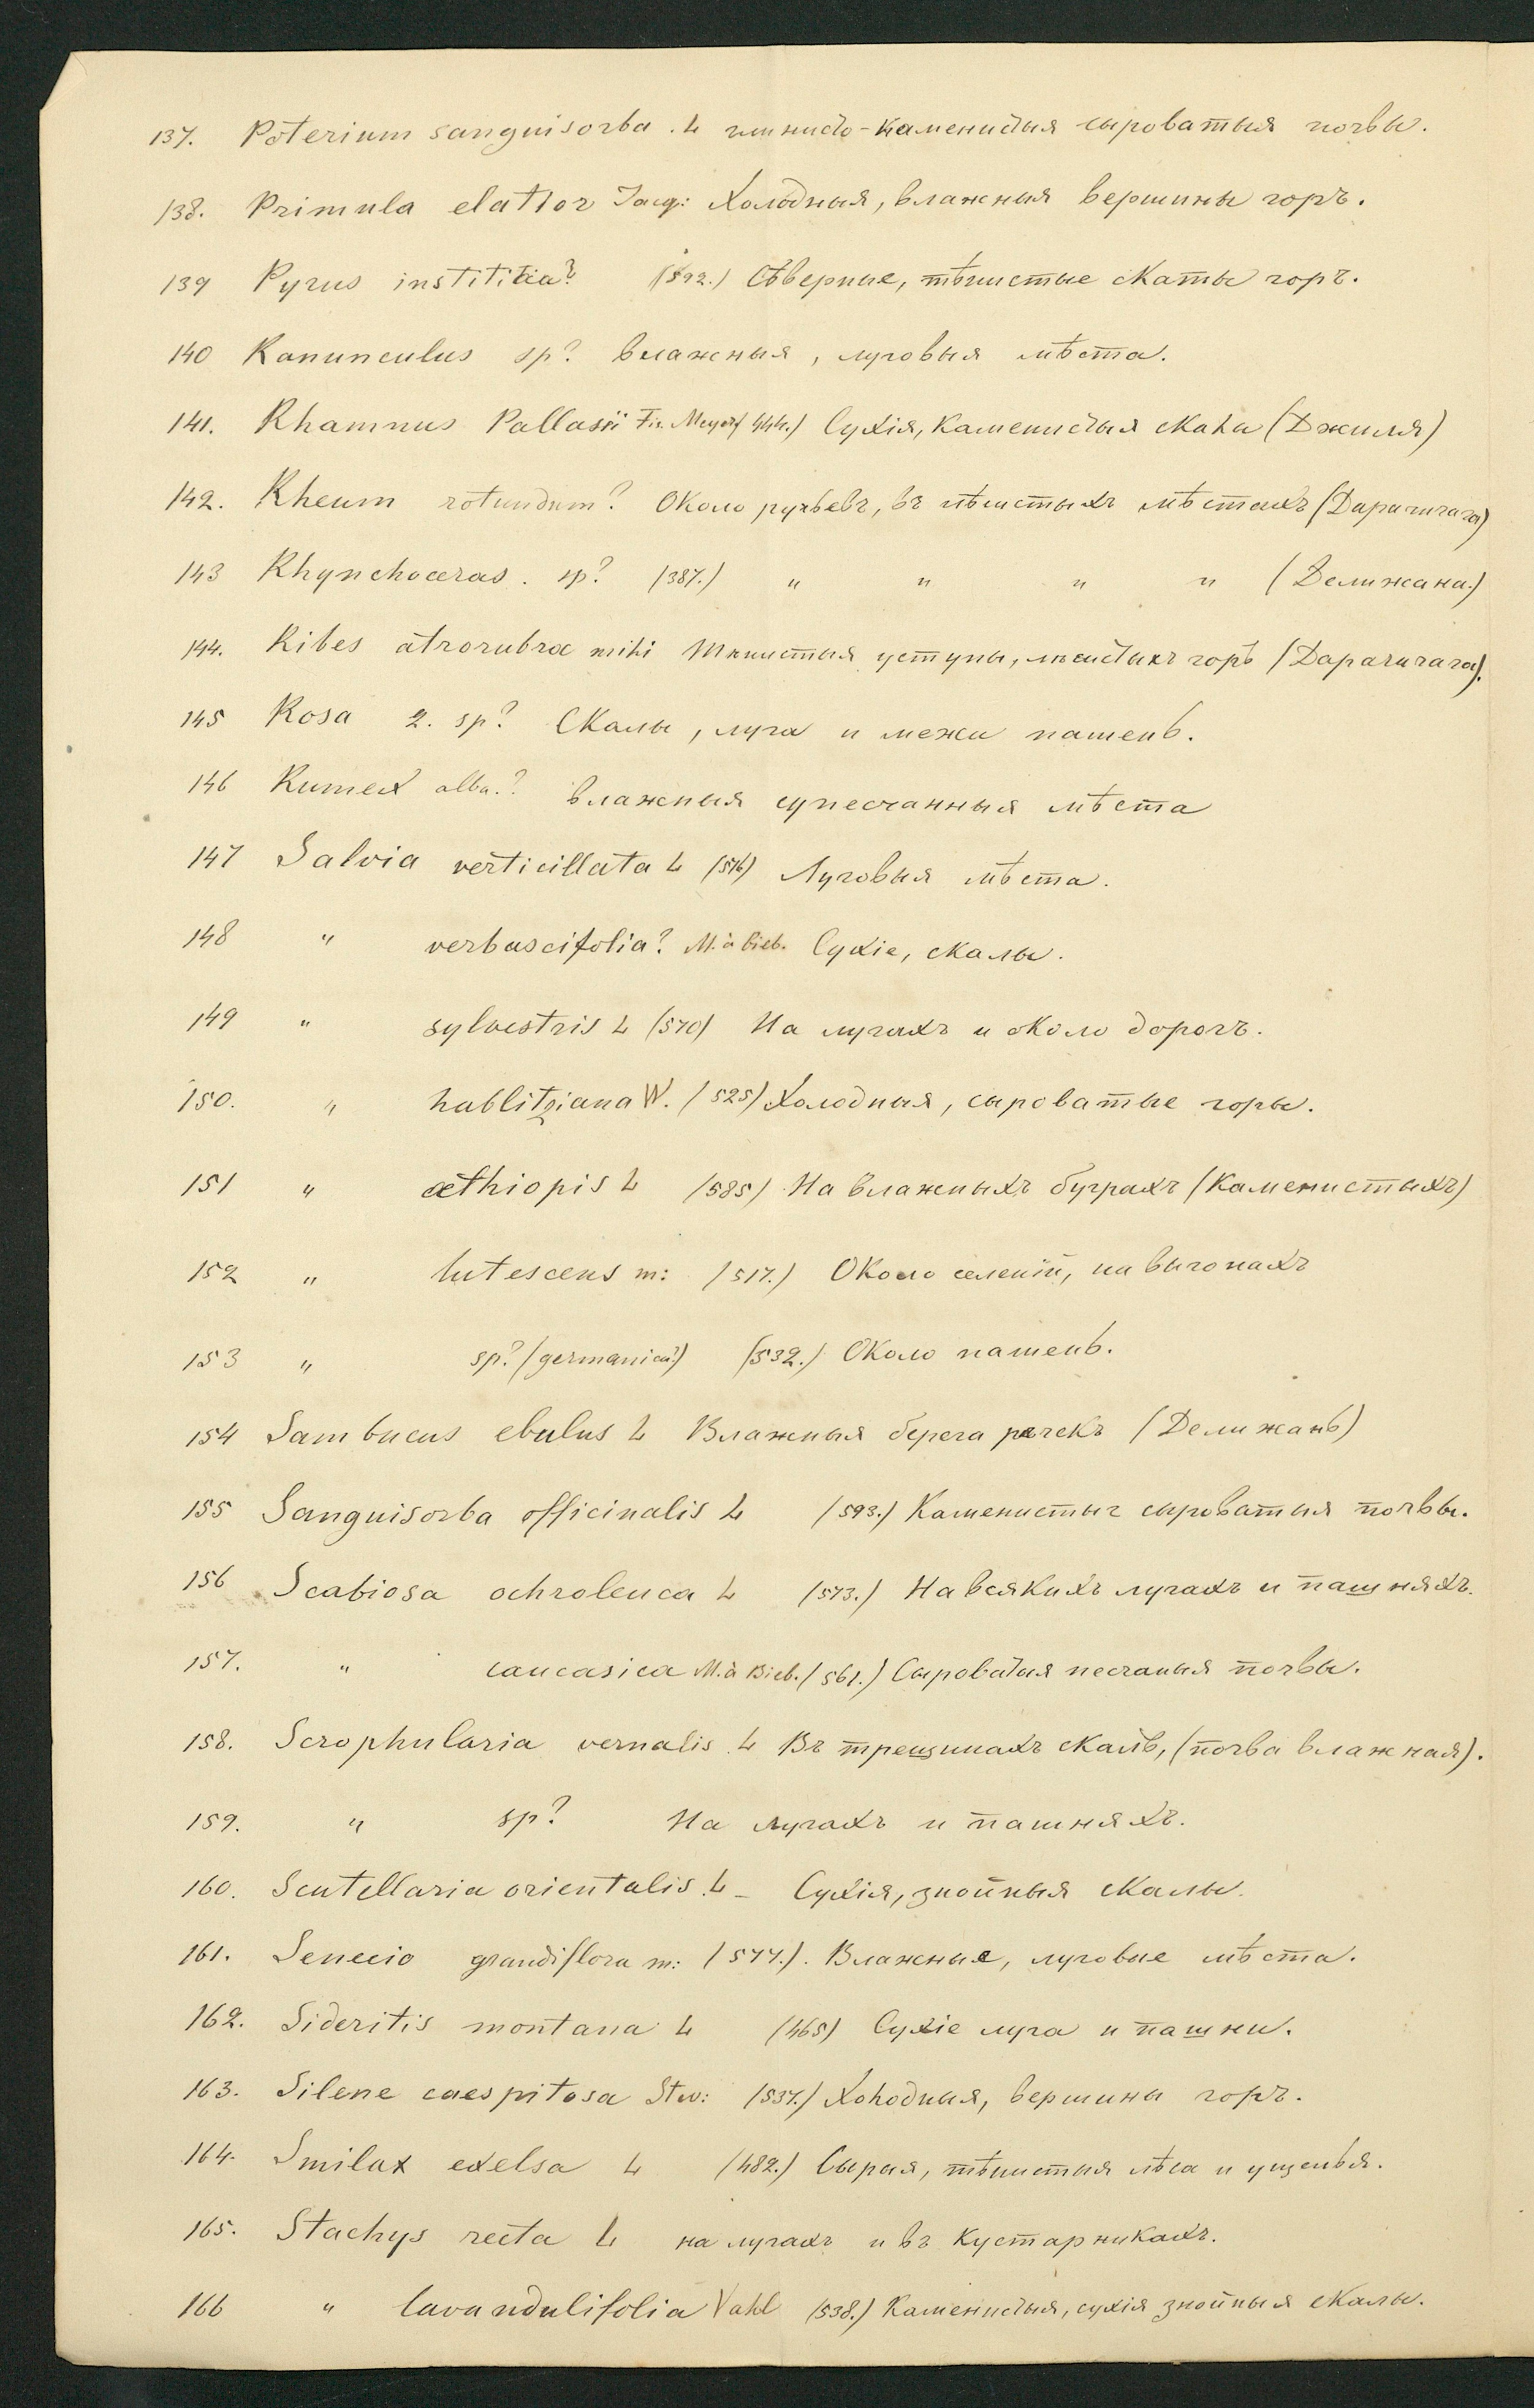 137. Poterium sanguisorba. L глинисто-каменистыя сыроватыя почвы.
138. Primula elatior Jacq: Холодныя, влажныя вершины горъ.
139 Pyrus instititia? (592.) Сѣверные, тѣнистые скаты горъ.
140 Ranunculus sp? влажныя, луговыя мѣста.
141. Rhamnus Pallasii Fis. Meyer (444.) Сухія, каменистыя скалы (Джиля)
142. Rheum rotundum? Около ручьевъ, въ тѣнистыхъ мѣстахъ (Дарачичага)
143 Rhynchoceras. sp? (387.) " " " " (Делижана.)
144. Ribes atrorubra mihi Тѣнистыя уступы, лѣсистыхъ горъ (Дарачичага).
145 Rosa 2. sp? Скалы, луга и межи пашень.
146 Rumex alba.? влажныя супесчанныя мѣста
147 Salvia verticillata L (576) Луговыя мѣста.
148 " verbascifolia? M. à Bieb. Сухіе, скалы.
149 " sylvestris L (570) На лугахъ и около дорогъ.
150. " hablitziana W. (525) Холодныя, сыроватые горы.
151 " æthiopis L (585) На влажныхъ буграхъ (каменистыхъ)
152 " lutescens m: (517.) Около селеній, на выгонахъ
153 " sp? (germanica?) (532.) Около пашень.
154 Sambucus ebulus L Влажныя берега речекъ (Делижань)
155 Sanguisorba officinalis L (593.) Каменистыя сыроватыя почвы.
156 Scabiosa ochroleuca L (573.) На всякихъ лугахъ и пашняхъ.
157. " caucasica M. à Bieb. (561.) Сыроватыя песчаныя почвы.
158. Scrophularia vernalis. L Въ трещинахъ скалъ, (почва влажная).
159. " sp? На лугахъ и пашняхъ.
160. Scutellaria orientalis. L – Сухія, знойныя скалы.
161. Senecio grandiflora m: (577.). Влажные, луговые мѣста.
162. Sideritis montana L (465) Сухіе луга и пашни.
163. Silene caespitosa Stev: (537.) Холодныя, вершины горъ.
164. Smilax exelsa L (482.) Сырыя, тѣнистыя лѣса и ущелья.
165. Stachys recta L на лугахъ и въ кустарникахъ.
166 " lavandulifolia Vahl (538.) Каменистыя, сухія знойныя скалы.